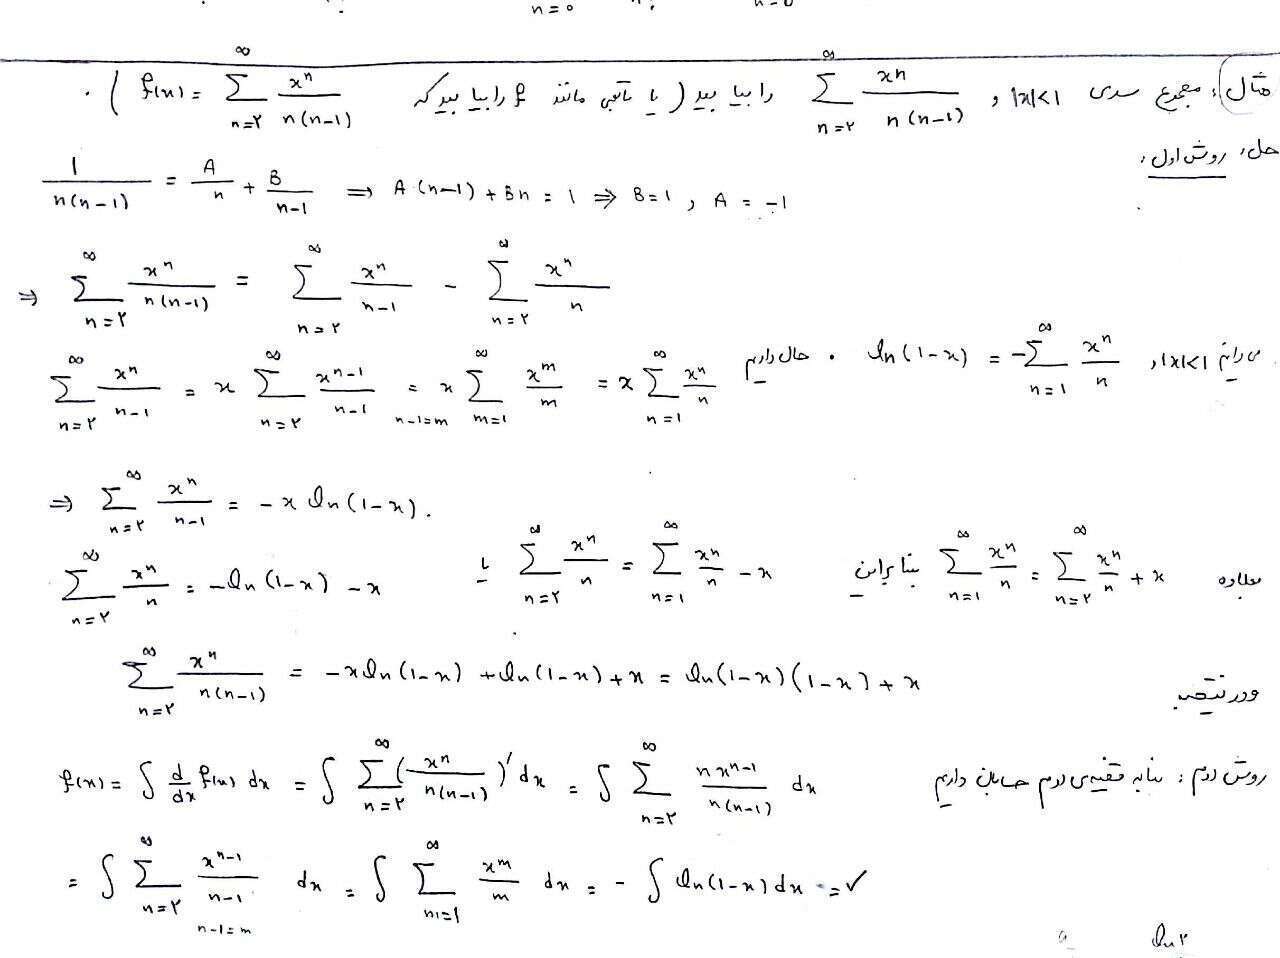 n=0 n! n=0
مثال: مجموع سری |x|<1 و \sum_{n=۲}^{∞} \frac{x^n}{n(n-1)} را بیابید (یا تابعی مانند f را بیابید که f(x) = \sum_{n=۲}^{∞} \frac{x^n}{n(n-1)}) .
حل: روش اول:
\frac{1}{n(n-1)} = \frac{A}{n} + \frac{B}{n-1} ⇒ A(n-1) + Bn = 1 ⇒ B=1 , A = -1
⇒ \sum_{n=۲}^{∞} \frac{x^n}{n(n-1)} = \sum_{n=۲}^{∞} \frac{x^n}{n-1} - \sum_{n=۲}^{∞} \frac{x^n}{n}
می‌دانیم |x|<1 و ln(1-x) = -\sum_{n=1}^{∞} \frac{x^n}{n} . حال داریم
\sum_{n=۲}^{∞} \frac{x^n}{n-1} = x \sum_{n=۲}^{∞} \frac{x^{n-1}}{n-1} = x \sum_{m=1}^{∞} \frac{x^m}{m} = x \sum_{n=1}^{∞} \frac{x^n}{n}
n-1=m
⇒ \sum_{n=۲}^{∞} \frac{x^n}{n-1} = -x ln(1-x).
بعلاوه \sum_{n=1}^{∞} \frac{x^n}{n} = \sum_{n=۲}^{∞} \frac{x^n}{n} + x بنابراین \sum_{n=۲}^{∞} \frac{x^n}{n} = \sum_{n=1}^{∞} \frac{x^n}{n} - x یا \sum_{n=۲}^{∞} \frac{x^n}{n} = -ln(1-x) - x
ودر نتیجه \sum_{n=۲}^{∞} \frac{x^n}{n(n-1)} = -x ln(1-x) + ln(1-x) + x = ln(1-x)(1-x) + x
روش دوم: بنابه قضیه‌ی دوم حسابان داریم f(x) = ∫ \frac{d}{dx} f(x) dx = ∫ \sum_{n=۲}^{∞} (\frac{x^n}{n(n-1)})' dx = ∫ \sum_{n=۲}^{∞} \frac{n x^{n-1}}{n(n-1)} dx
= ∫ \sum_{n=۲}^{∞} \frac{x^{n-1}}{n-1} dx = ∫ \sum_{m=1}^{∞} \frac{x^m}{m} dx = - ∫ ln(1-x) dx = ✓
n-1=m
ln ۲